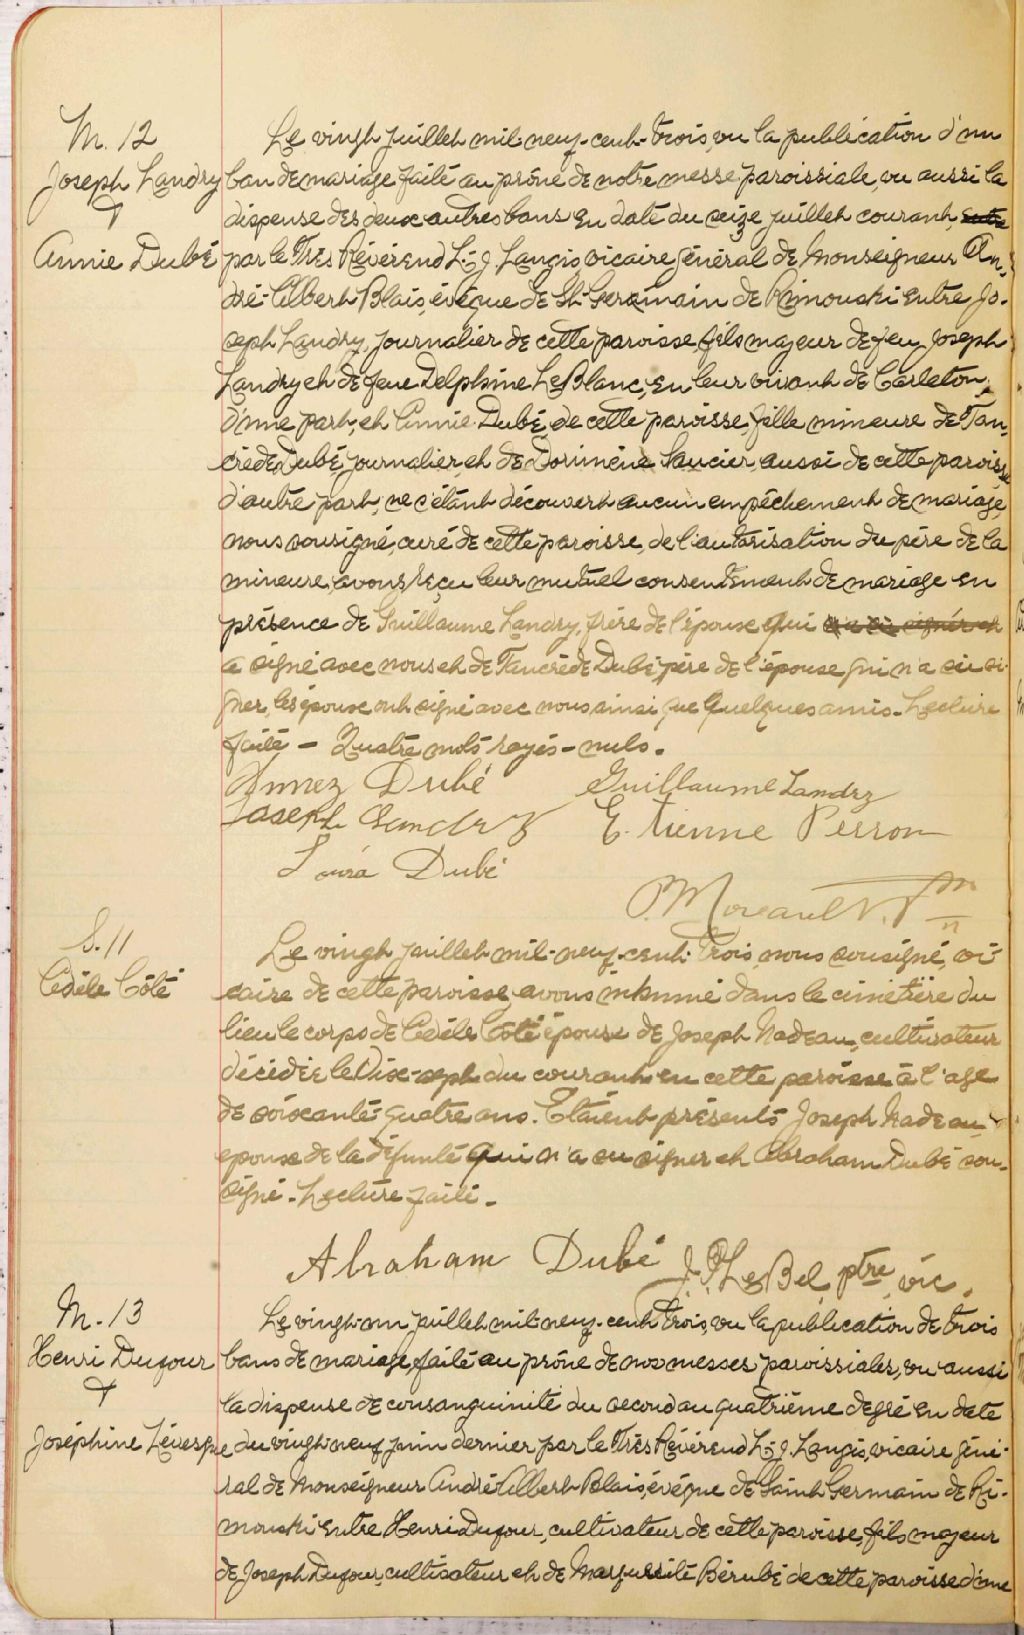 M. 12
Joseph Landry
&
Annie Dubé
Le vingt juillet mil-neuf-cent-trois, vu la publication d'un
ban de mariage faite au prône de notre messe paroissiale, vu aussi la
dispense des deux autres bans en date du seize juillet courant,
par le Très Révérend L. J. Langis, vicaire général de Monseigneur An-
dré-Albert Blais, évêque de St. Germain de Rimouski entre Jo-
seph Landry, journalier de cette paroisse, fils majeur de feu Joseph
Landry et de feue Delphine LeBlanc, en leur vivant de Carleton,
d'une part, et Annie Dubé, de cette paroisse, fille mineure de Tan-
crède Dubé, journalier, et de Dorimène Saucier, aussi de cette paroisse
d'autre part, ne s'étant découvert aucun empêchement de mariage,
nous sousigné, curé de cette paroisse, de l'autorisation du père de la
mineure, avons reçu leur mutuel consentement de mariage en
présence de Guillaume Landry, frère de l'époux qui
a signé avec nous et de Tancrède Dubé, père de l'épouse qui n'a su si-
gner, les époux ont signé avec nous ainsi que quelques amis. Lecture
faite — Quatre mots rayés - nuls.
Annez Dubé Guillaume Landry
Joseph Landry E. tienne Perron
Loura Dubé
P. Moreault V. F.
S. 11
Cédéle Côté
Le vingt juillet mil-neuf-cent-trois, nous sousigné, vi-
caire de cette paroisse avons inhumé dans le cimetière du
lieu le corps de Cédéle Côté épouse de Joseph Nadeau, cultivateur
décédée le dix-sept du courant en cette paroisse à l'age
de soixante-quatre ans. Étaient présents Joseph Nadeau,
epoux de la défunte qui n'a su signer et Abraham Dubé sou-
signé. Lecture faite.
Abraham Dubé J. P. LeBel ptre, vic.
M. 13
Henri Dufour
&
Joséphine Lévesque
Le vingt-un juillet mil-neuf-cent trois, vu la publication de trois
bans de mariage, faite au prône de nos messes paroissiales, vu aussi
la dispense de consanguinité du second au quatrième degré en date
du vingt-neuf juin dernier par le Très Révérend L. J. Langis, vicaire géné-
ral de Monseigneur André Albert Blais, évêque de Saint Germain de Ri-
mouski entre Henri Dufour, cultivateur de cette paroisse, fils majeur
de Joseph Dufour, cultivateur et de Marguerite Bérubé de cette paroisse d'une